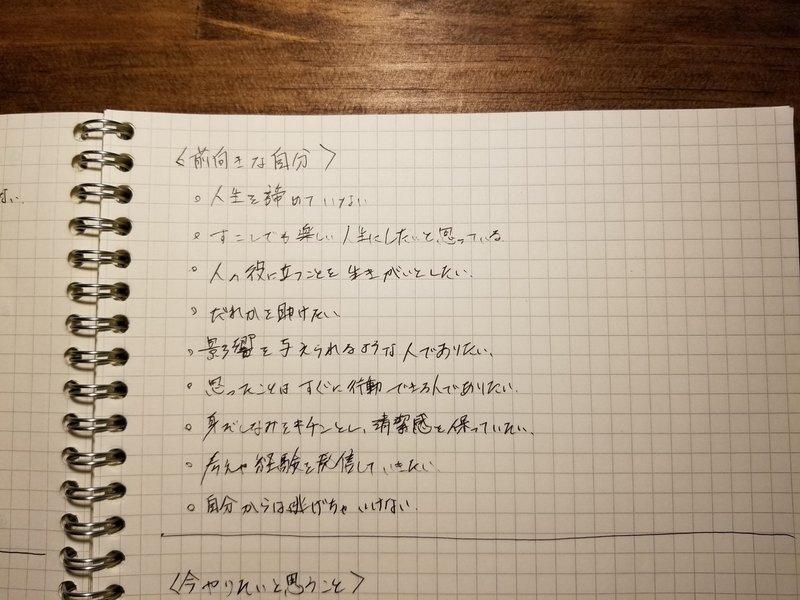 ない.
〈前向きな自分〉
○ 人生を諦めていない
○ すこしでも楽しい人生にしたいと思っている
○ 人の役に立つことを生きがいとしたい.
○ だれかを助けたい
○ 影響を与えられるような人でありたい、
○ 思ったことはすぐに行動できる人でありたい.
○ 身だしなみをキチンとし、清潔感を保っていたい、
○ 考えや経験を発信していきたい
○ 自分からは逃げちゃいけない.
〈今やりたいと思うこと〉